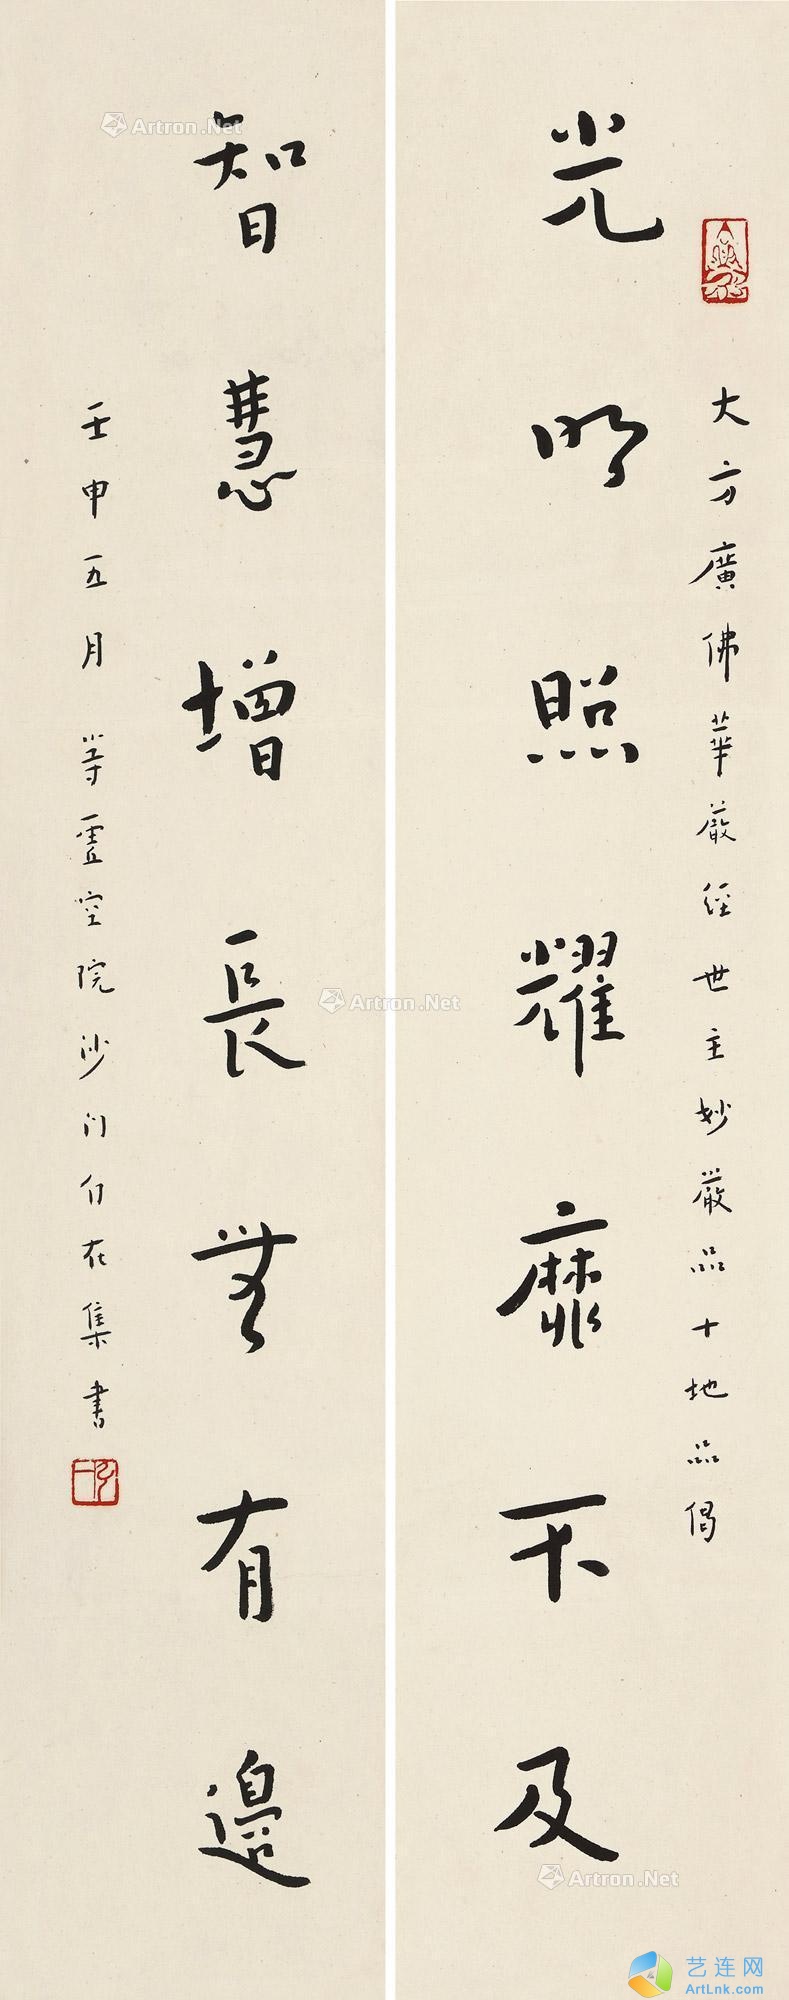 大方廣佛華嚴經世主妙嚴品十地品偈
光明照耀靡不及
智慧增長無有邊
壬申五月 等虛空院沙門自在集書
Artron.Net
Artron.Net
Artron.Net
艺连网
ArtLnk.com